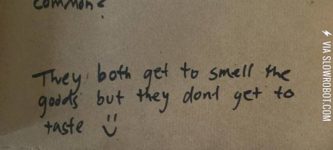 common?
They both get to smell the
goods but they dont get to
taste
VIA SLOWROBOT.COM